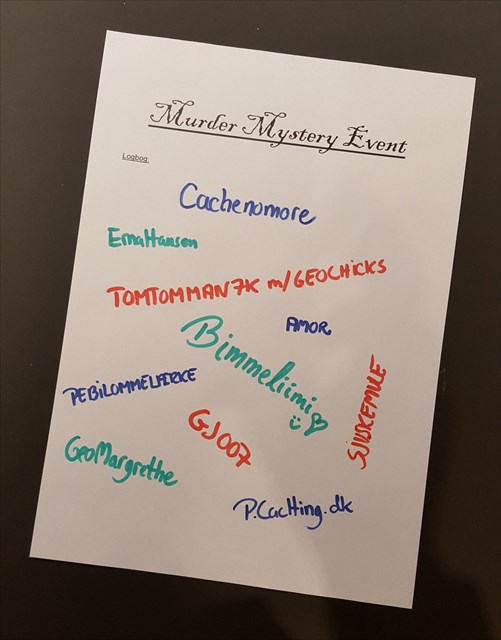 Murder Mystery Event
Logbog:
Cachenomore
ErnaHansen
TOMTOMMAN7K m/GEOCHICKS
AMOR
Bimmeliimi
PEBILOMMELFERKE
GJ007
SJUSKEMULE
GeoMargrethe
P.Cachting.dk